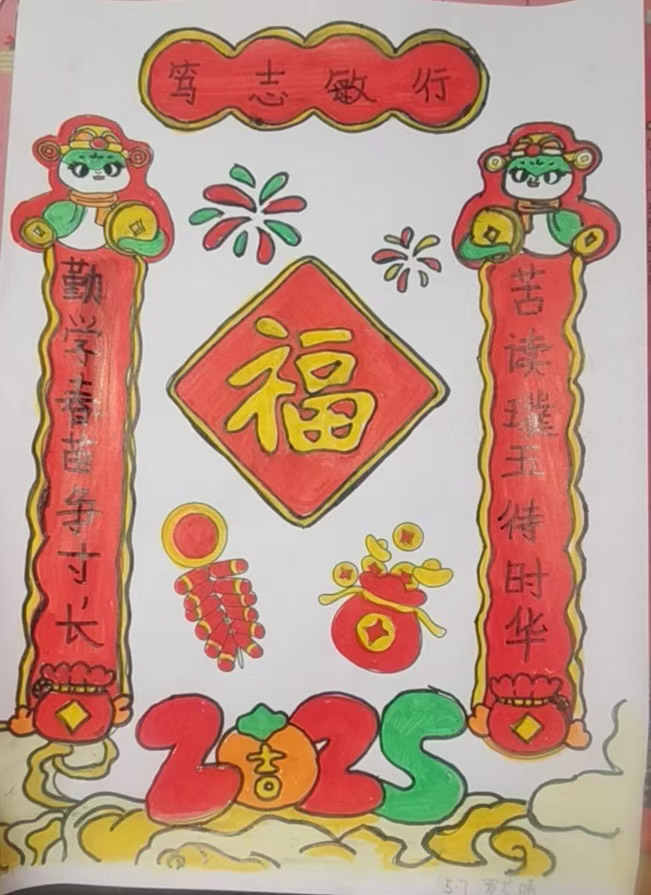 笃志敏行
勤学春苗争寸长
苦读璞玉待时华
福
2025
吉